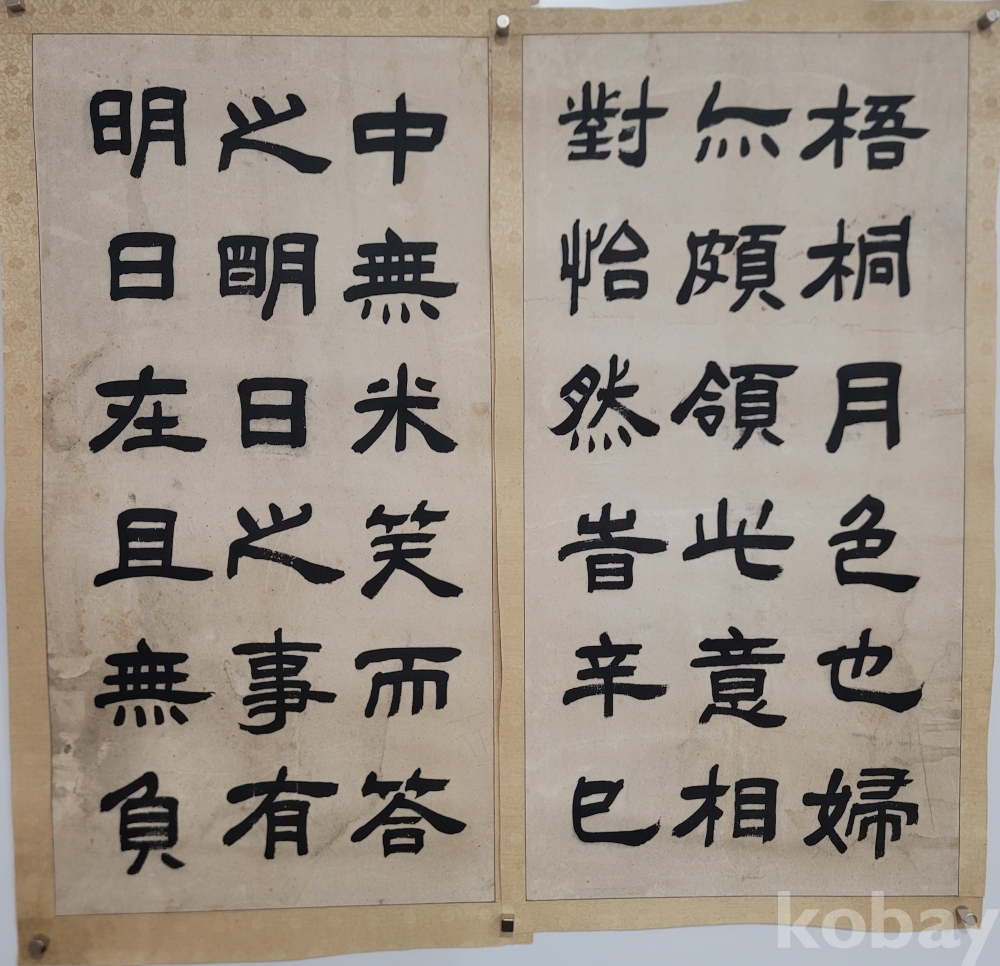 梧桐月色也婦
亦頗領此意相
對怡然旹辛巳
中無米笑而答
之朙日之事有
明日在且無負
kobay